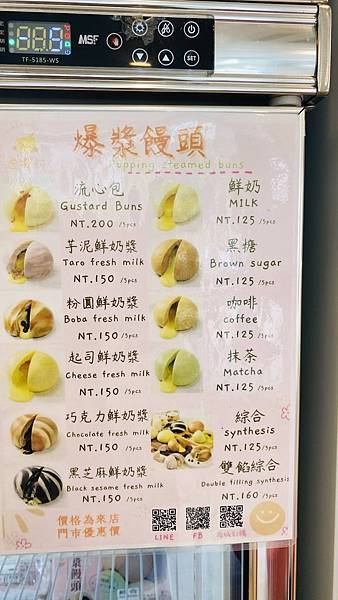 TF-5185-WS
MSF
SET
爆漿饅頭
Popping steamed buns
流心包
Gustard Buns
NT.200 /5pcs
芋泥鮮奶漿
Taro fresh milk
NT.150 /5pcs
粉圓鮮奶漿
Boba fresh milk
NT.150 /5pcs
起司鮮奶漿
Cheese fresh milk
NT.150 /5pcs
巧克力鮮奶漿
Chocolate fresh milk
NT.150 /5pcs
黑芝麻鮮奶漿
Black sesame fresh milk
NT.150 /5pcs
鮮奶
MILK
NT.125 /5pcs
黑糖
Brown sugar
NT.125 /5pcs
咖啡
coffee
NT.125 /5pcs
抹茶
Matcha
NT.125 /5pcs
綜合
synthesis
NT.125 /5pcs
雙餡綜合
Double filling synthesis
NT.160 /5pcs
價格為來店
門市優惠價
LINE
FB